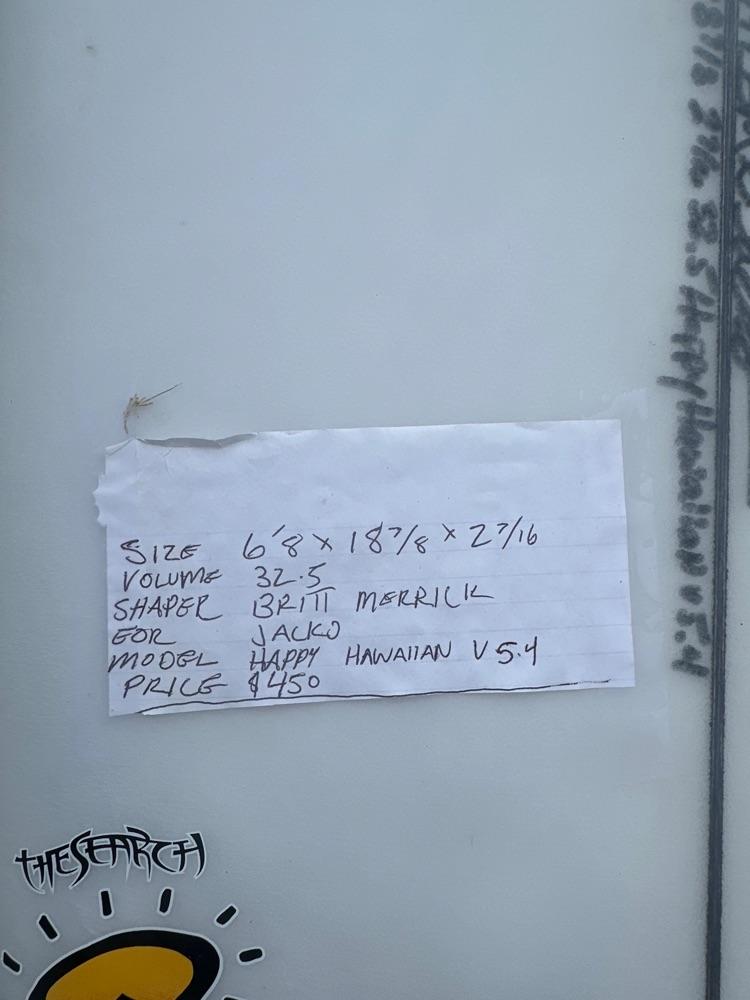 SIZE 6'8 x 18 7/8 x 2 7/16
VOLUME 32.5
SHAPER BRITT MERRICK
FOR JACKO
MODEL HAPPY HAWAIIAN V 5.4
PRICE $450
THE SEARCH
32.5 Happy Hawaiian v 5.4